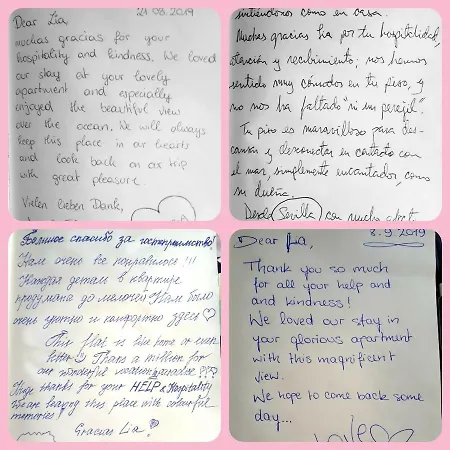 21.08.2019
Dear Lia,
muchas gracias for your
hospitality and kindness. We loved
our stay at your lovely
apartment and especially
enjoyed the beautiful view
over the ocean. We will always
keep this place in our hearts
and look back on our trip
with great pleasure.
Vielen lieben Dank,
sintiéndonos como en casa.
Muchas gracias Lia por tu hospitalidad,
atención y recibimiento; nos hemos
sentido muy cómodos en tu piso, y
no nos ha faltado "ni un perejil".
Tu piso es maravilloso para des-
cansar y desconectar en contacto con
el mar, simplemente encantador, como
su dueña.
Desde Sevilla con mucho afecto
Большое спасибо за гостеприимство
Нам очень все понравилось!!!
Каждая деталь в квартире
продумана до мелочей! Нам было
очень уютно и комфортно здесь ♡
This flat is like home or even
better! Thanks a million for
our wonderful vacation paradise!!!
Huge thanks for your HELP & Hospitality
We are leaving this place with colourful
memories!
Gracias Lia!
8.9.2019
Dear Lia,
Thank you so much
for all your help and
and kindness!
We loved our stay in
your glorious apartment
with this magnificent
view.
We hope to come back some
day...
Love